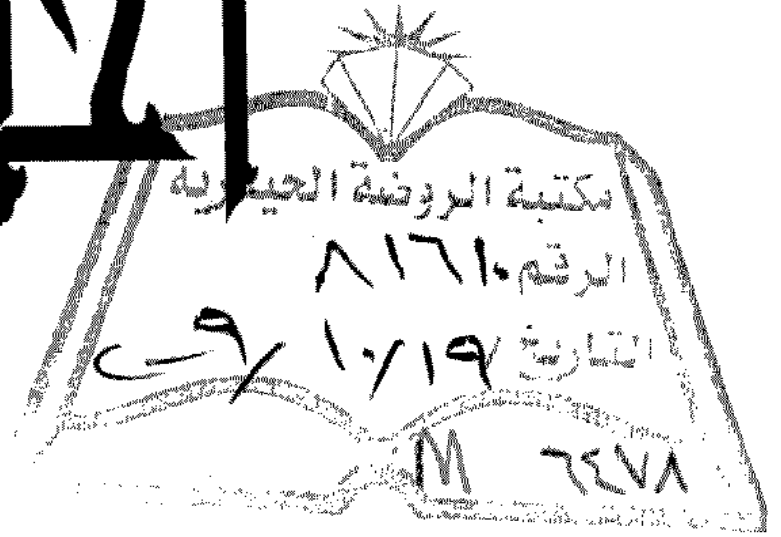 مكتبة الروضة الحيدرية
الرقم ٨١٦١٠
التاريخ ٩/١٠/١٩
M ٦٤٧٨